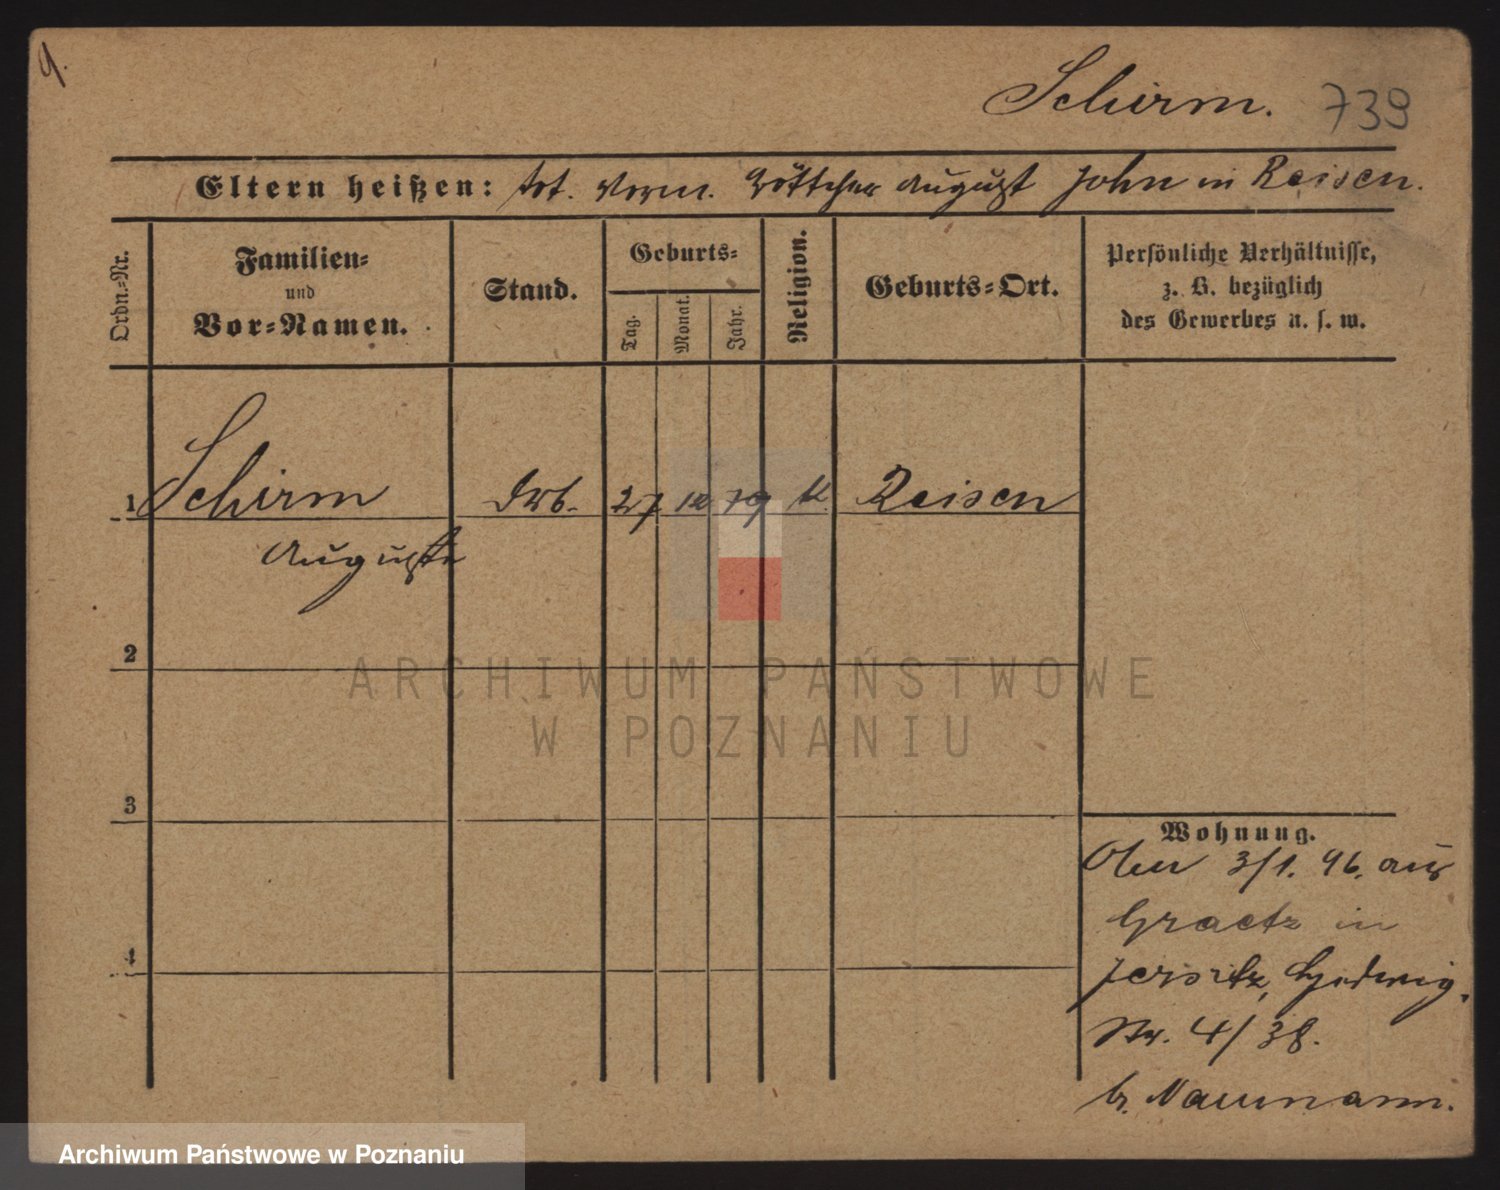 9.
Schirm. 739
Eltern heißen: tot. Vorm. Böttcher August John in Reisen.
Ordn.=Nr.
Familien=
und
Vor=Namen.
Stand.
Geburts=
Tag.
Monat.
Jahr.
Religion.
Geburts=Ort.
Persönliche Verhältnisse,
z. B. bezüglich
des Gewerbes u. s. w.
1 Schirm 27 10 79 k. Reisen
Auguste
2
3
4
Wohnung.
3/1. 96. aus
Graetz in
Jersitz, Hedwig.
Str. 4/38.
b. Naumann.
ARCHIWUM PAŃSTWOWE
W POZNANIU
Archiwum Państwowe w Poznaniu